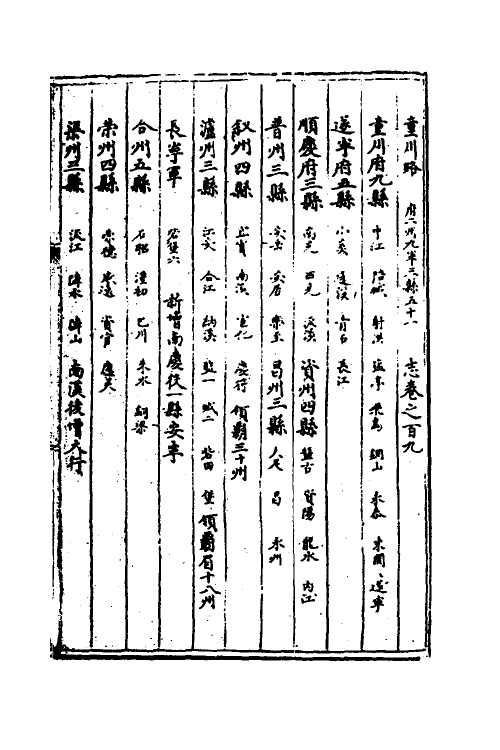 童川路 府二州九軍三縣五十一 志卷之一百九
童川府九縣 中江 涪城 射洪 塩亭 飛烏 銅山 永泰 東関 遂寧
遂寧府五縣 小溪 蓬溪 青石 長江
順慶府三縣 南充 西充 流溪 資州四縣 盤石 資陽 龍水 内江
普州三縣 安岳 安居 樂至 昌州三縣 大足 昌 永川
叙州四縣 宜賓 南溪 宣化 慶符 領羈三十州
瀘州三縣 江安 合江 納溪 監一 城二 砦四 堡 領羈百十八州
長寧軍 砦堡六 新增南慶從一縣安寧
合州五縣 石照 漢初 巴川 赤水 銅梁
榮州四縣 榮德 威遠 資官 應靈
渠州三縣 流江 隣水 隣山 南渡後增大竹